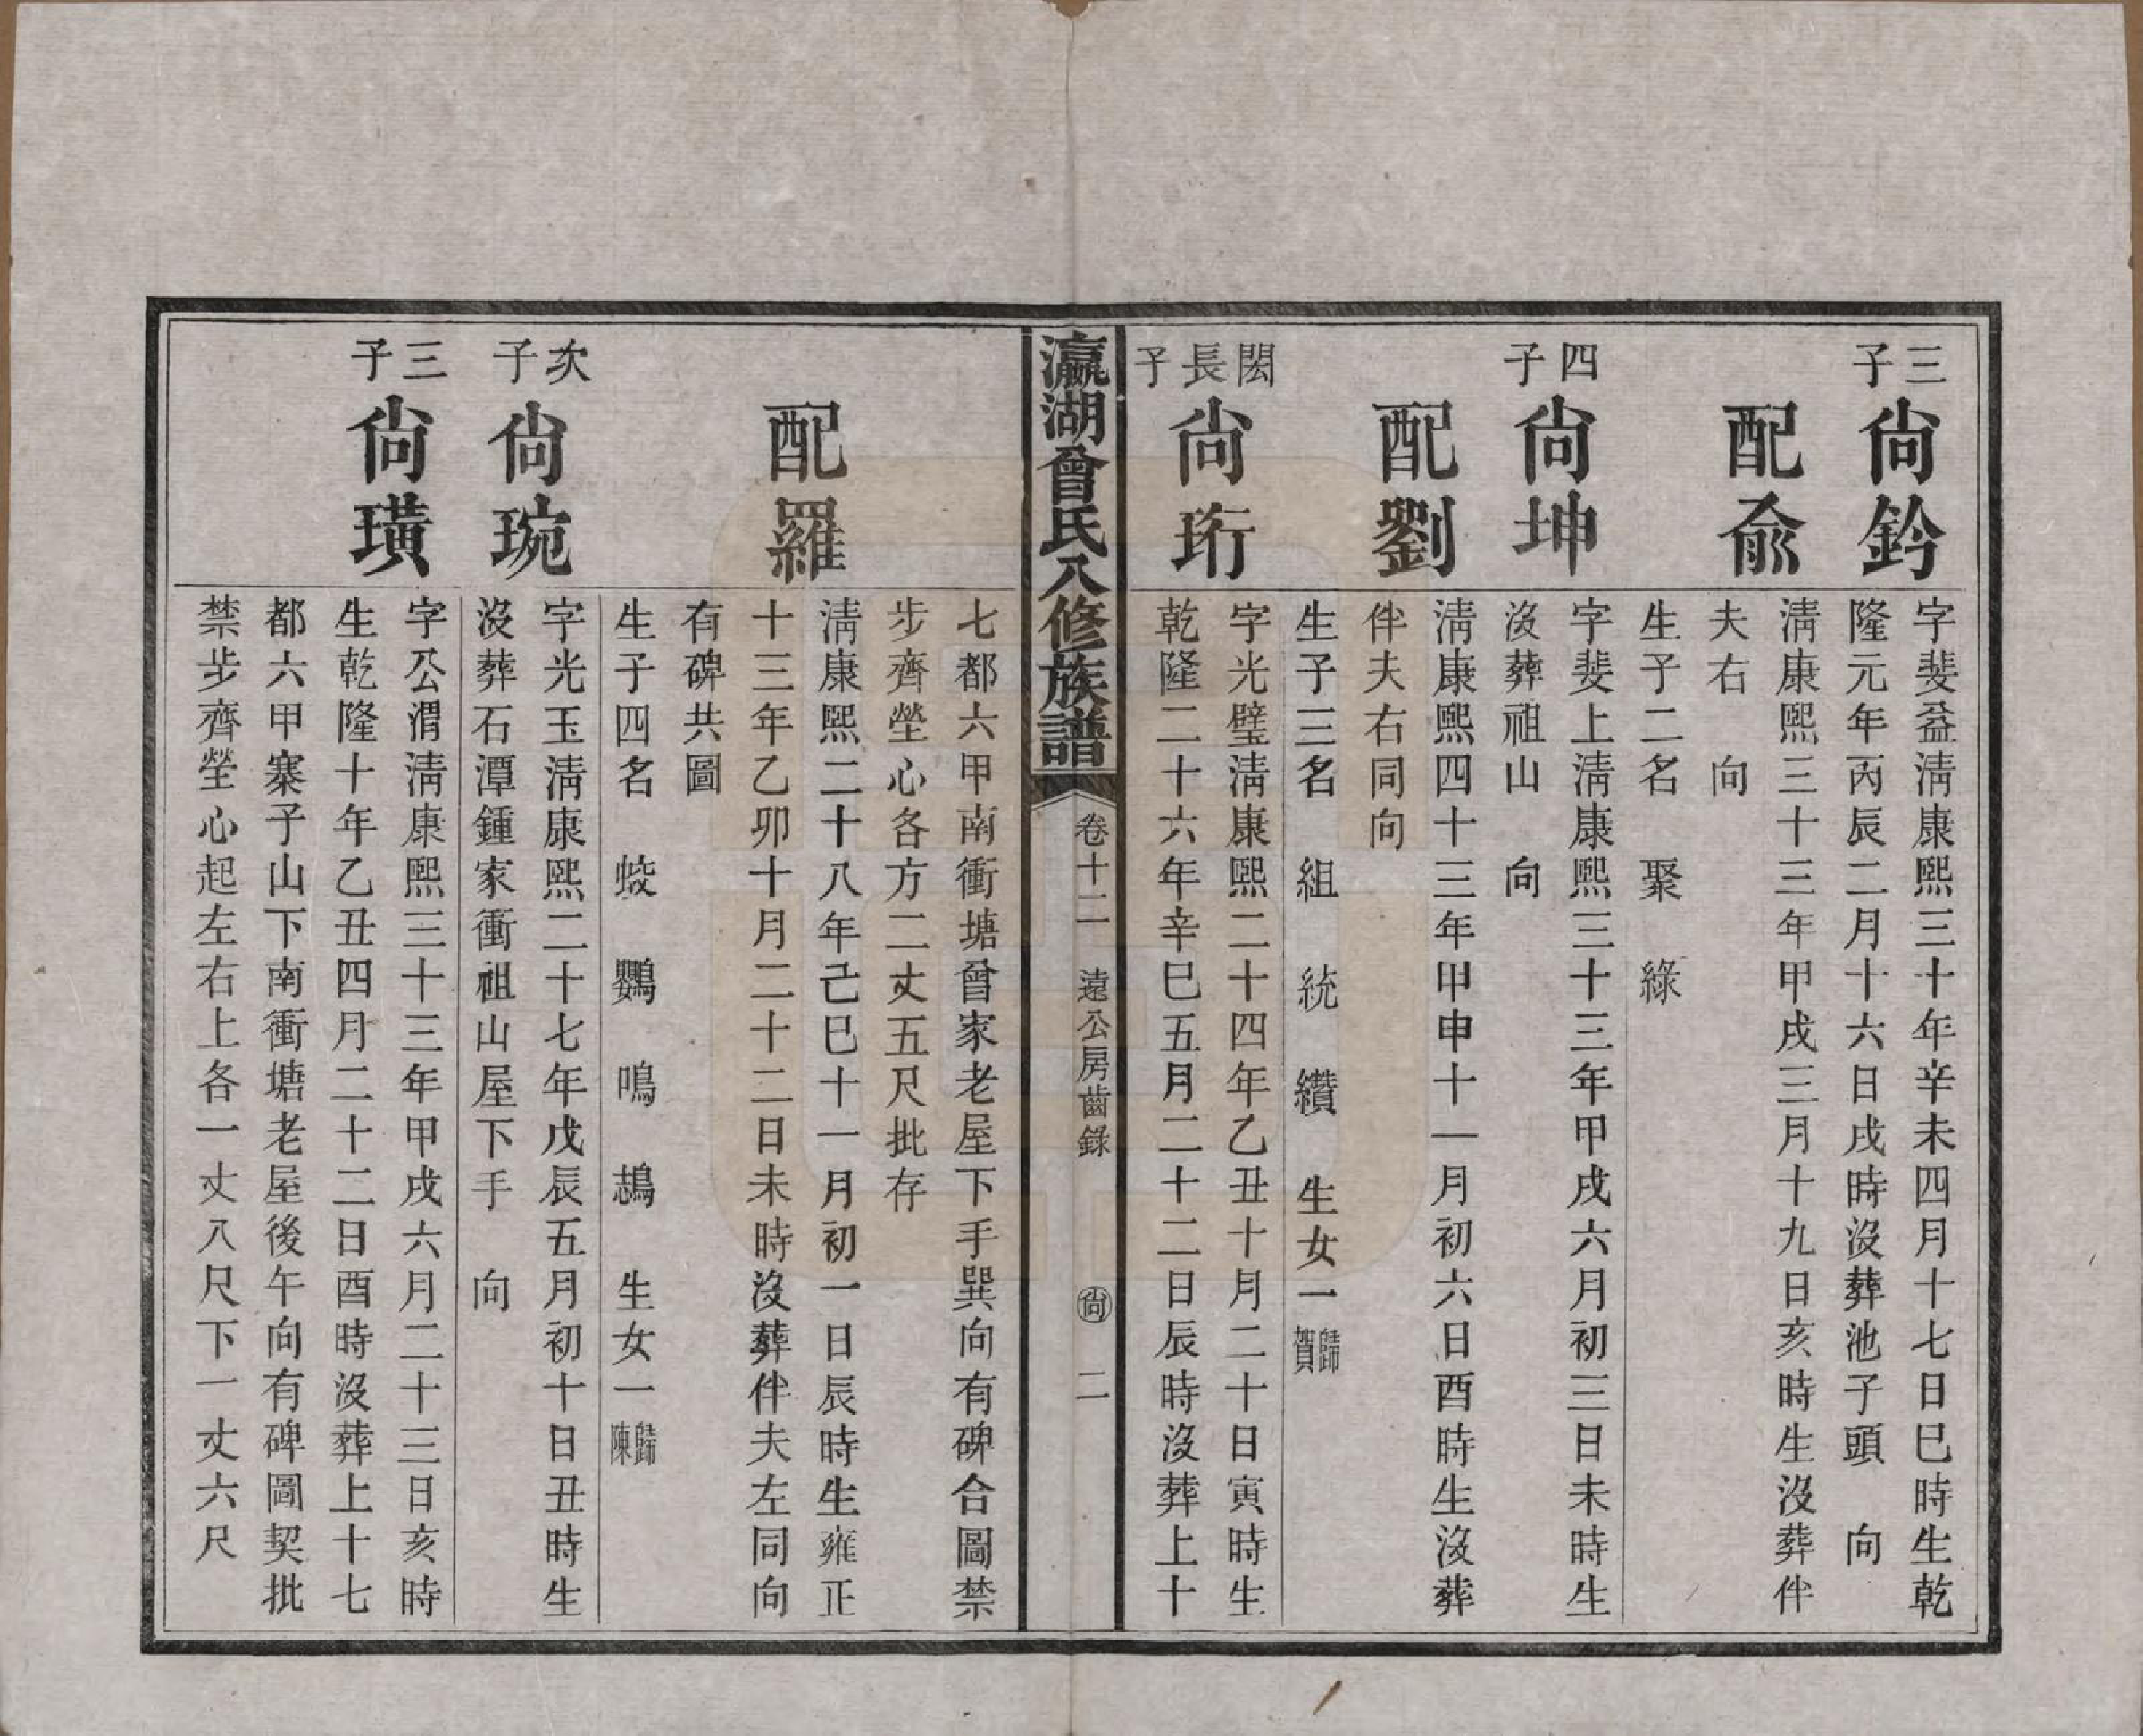 三子
尙鈐
字斐益淸康熙三十年辛未四月十七日巳時生乾
隆元年丙辰二月十六日戌時沒葬池子頭　向
配俞
淸康熙三十三年甲戌三月十九日亥時生沒葬伴
夫右　向
生子二名　聚　綠
四子
尙坤
字斐上淸康熙三十三年甲戌六月初三日未時生
沒葬祖山　向
配劉
淸康熙四十三年甲申十一月初六日酉時生沒葬
伴夫右同向
生子三名　組　統　纘　生女一歸賀
閎長子
尙珩
字光璧淸康熙二十四年乙丑十月二十日寅時生
乾隆二十六年辛巳五月二十二日辰時沒葬上十
瀛湖曾氏八修族譜
卷十二　遠公房齒錄　尙　二
七都六甲南衝塘曾家老屋下手巽向有碑合圖禁
步齊塋心各方二丈五尺批存
配羅
淸康熙二十八年己巳十一月初一日辰時生雍正
十三年乙卯十月二十二日未時沒葬伴夫左同向
有碑共圖
生子四名　蛟　鸚　鳴　鵡　生女一歸陳
次子
尙琬
字光玉淸康熙二十七年戊辰五月初十日丑時生
沒葬石潭鍾家衝祖山屋下手　向
三子
尙璜
字公渭淸康熙三十三年甲戌六月二十三日亥時
生乾隆十年乙丑四月二十二日酉時沒葬上十七
都六甲寨子山下南衝塘老屋後午向有碑圖契批
禁步齊塋心起左右上各一丈八尺下一丈六尺